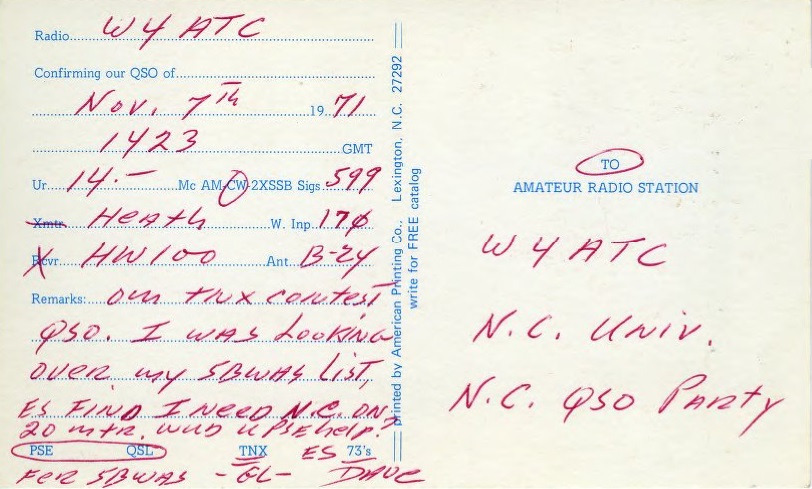 Radio W4ATC
Confirming our QSO of
Nov. 7th 1971
1423 GMT
Ur 14.- Mc AM-CW-2XSSB Sigs 599
Xmtr Heath W. Inp. 170
Rcvr. HW100 Ant. B-24
Remarks: om tnx contest
QSO. I was looking
over my 5BWAS list,
ES FIND I NEED N.C. ON
20 mtr. wud u PSE help?
PSE QSL TNX ES 73's
FER 5BWAS -GL- DAVE
printed by American Printing Co., Lexington, N.C. 27292
write for FREE catalog
TO
AMATEUR RADIO STATION
W4ATC
N.C. Univ.
N.C. QSO Party